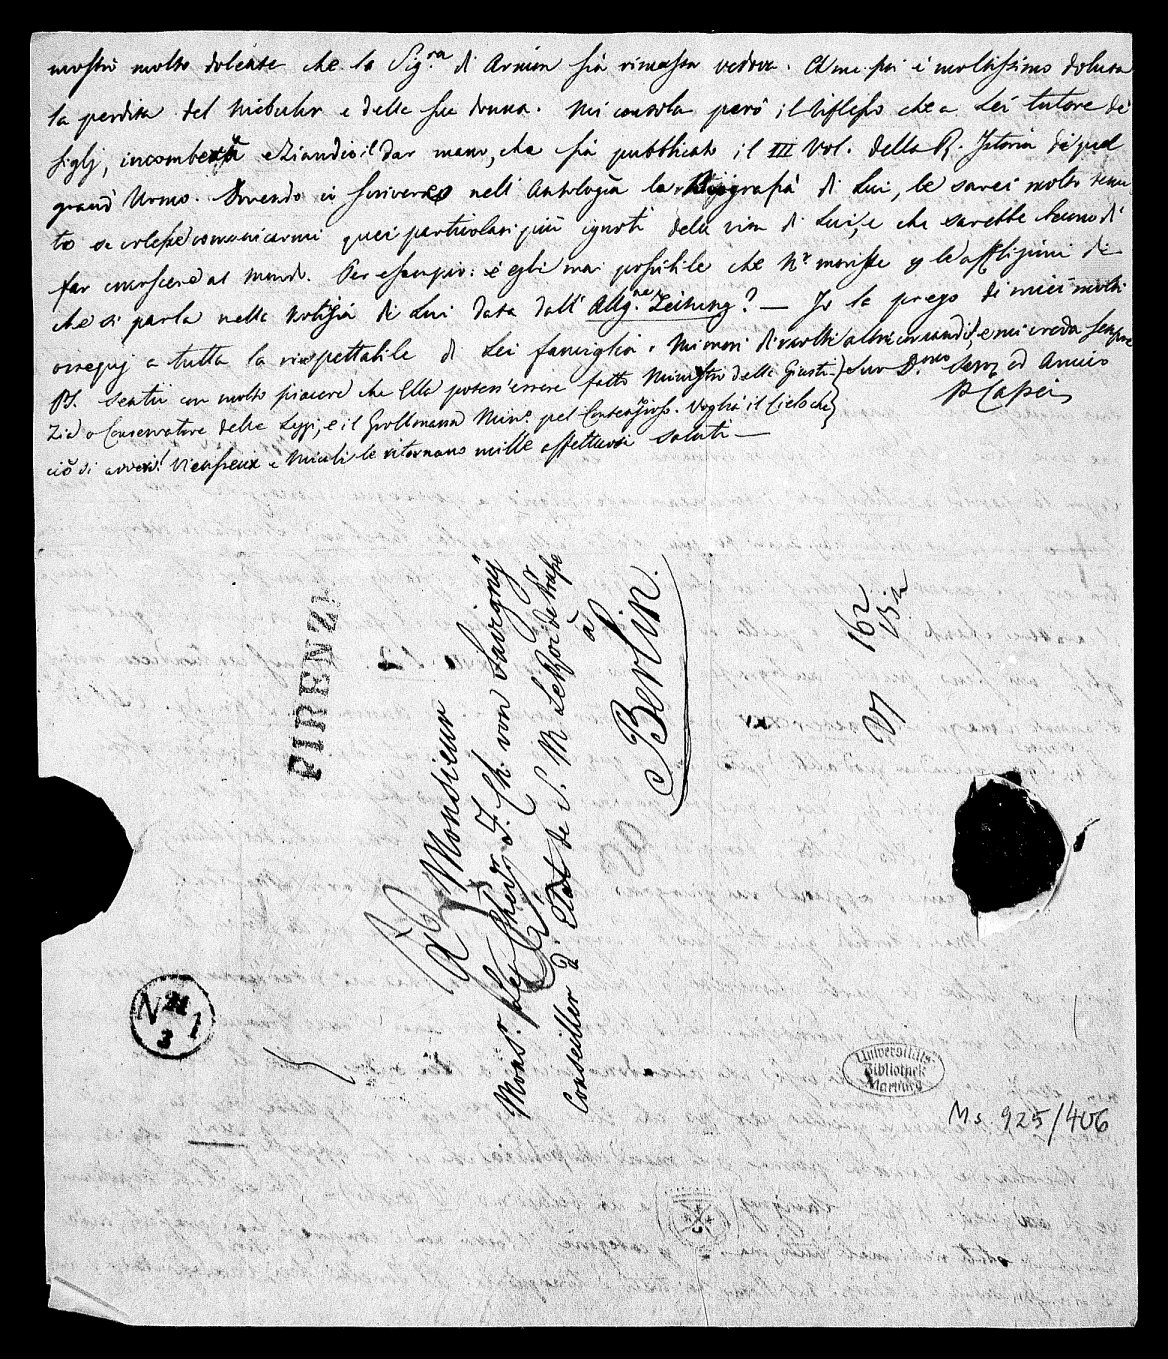 mostrò molto dolente che la Sig.ra di Arnim sia rimasta vedova. A me poi è moltissimo doluta
la perdita del Niebuhr e della sua donna. Mi consola però il riflesso che a Lei tutore de'
figlj, incomberà eziandio il dar mano, che sia pubblicato il III Vol. della R. Istoria di quel
grand' Uomo. Dovendo io scrivere nell' Antologia la Biografia di Lui, le sarei molto tenu
to se volesse comunicarmi quei particolari più ignoti della vita di Lui, e che sarebbe buono di
far conoscere al mondo. Per esempio: è egli mai possibile che N. morisse p le afflizioni di
che si parla nella notizia di Lui data dall' Allg.ne Zeitung? — Io la prego di miei molti
ossequj a tutta la rispettabile di Lei famiglia. Mi onori di molti altri comandi, e mi creda sempre
PS. Sentii con molto piacere che Ella potess'essere fatto Ministro della Giusti- Suo D.mo Serv. ed Amico
P Capei
zia o Conservatore delle Leggi, e il Grollmann Min.o pel Contenzioso. Voglia il Cielo che
ciò si avveri! Vieusseux e Niccoli le ritornano mille affettuosi saluti —
FIRENZE
A Monsieur
Mons.r Le Chev.r F. Ch. von Savigny
Conseiller d'Etat de S. M. Le Roi de Prusse
à
Berlin.
162
VI
N 21
3
1
Universitäts-
Bibliothek
Marburg
Ms. 925/406